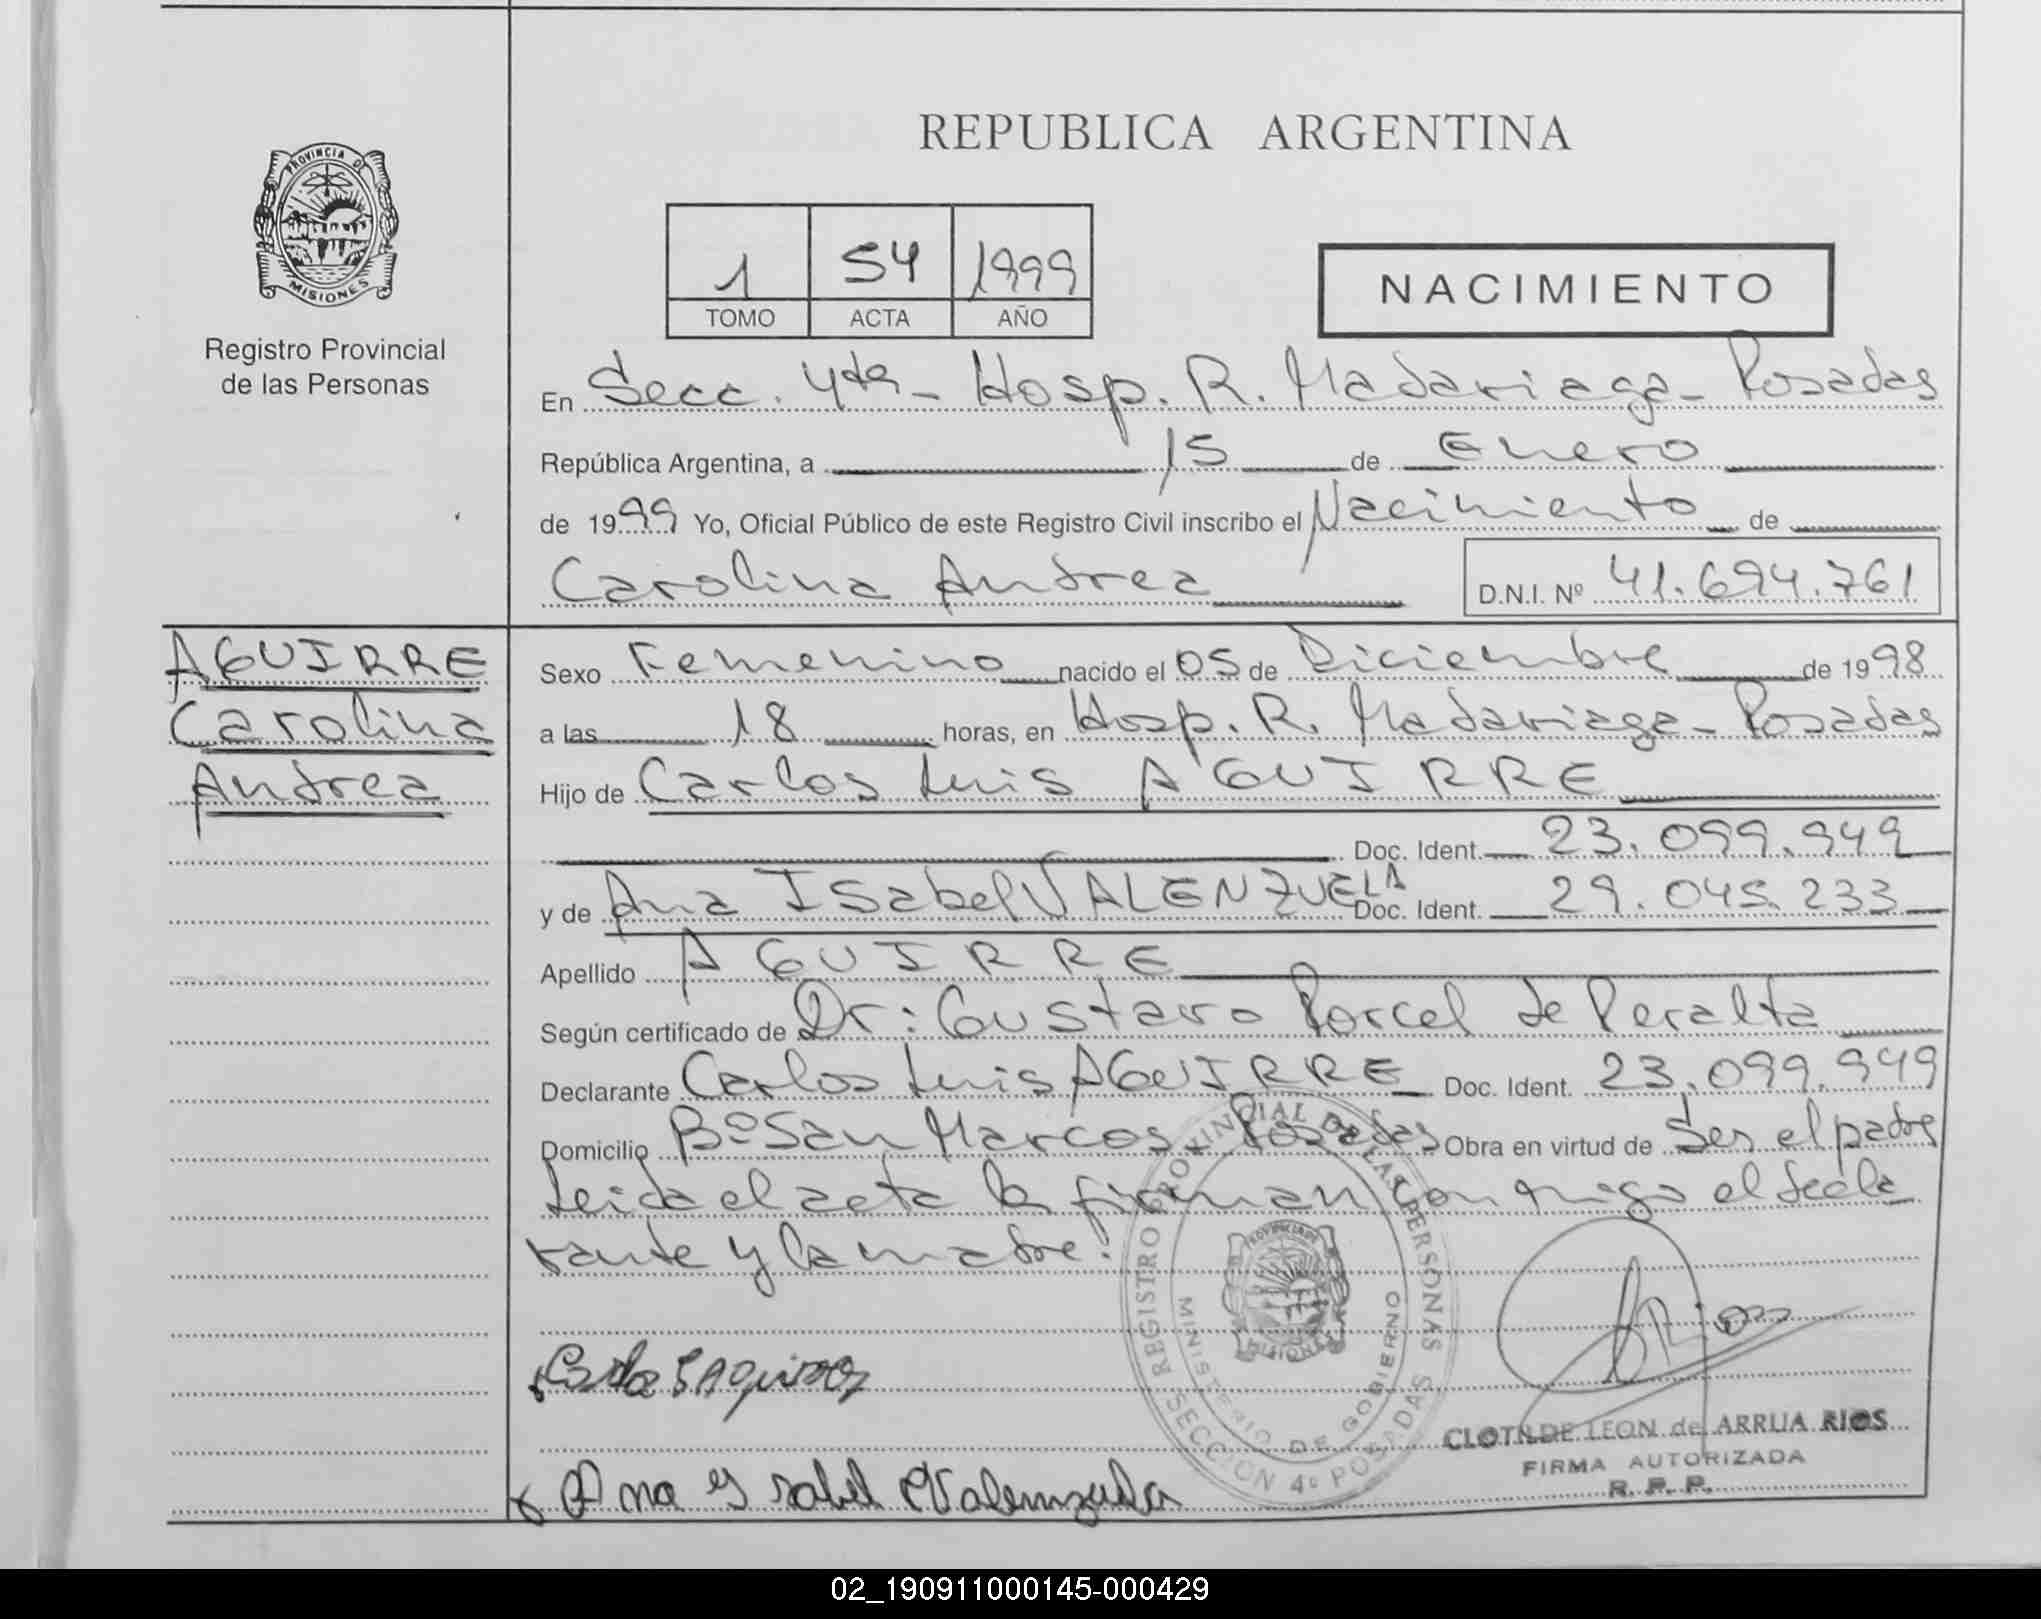 REPUBLICA ARGENTINA
PROVINCIA DE
MISIONES
Registro Provincial
de las Personas
1 54 1999
TOMO ACTA AÑO
NACIMIENTO
En Secc. 4ta - Hosp. R. Madariaga - Posadas
República Argentina, a 15 de Enero
de 1999 Yo, Oficial Público de este Registro Civil inscribo el Nacimiento de
Carolina Andrea D.N.I. Nº 41.694.761
AGUIRRE
Carolina
Andrea
Sexo Femenino nacido el 05 de Diciembre de 1998
a las 18 horas, en Hosp. R. Madariaga - Posadas
Hijo de Carlos Luis AGUIRRE
Doc. Ident. 23.099.949
y de Ana Isabel VALENZUELA Doc. Ident. 29.045.233
Apellido AGUIRRE
Según certificado de Dr: Gustavo Porcel de Peralta
Declarante Carlos Luis AGUIRRE Doc. Ident. 23.099.949
Domicilio Bº San Marcos Posadas Obra en virtud de Ser el padre
Leida el acta la firman conmigo el decla
rante y la madre.
REGISTRO PROVINCIAL DE LAS PERSONAS
MINISTERIO DE GOBIERNO
SECCION 4º POSADAS
Ana Ysabel Valenzuela
CLOTILDE LEON de ARRUA RIOS
FIRMA AUTORIZADA
R. P. P.
02_190911000145-000429